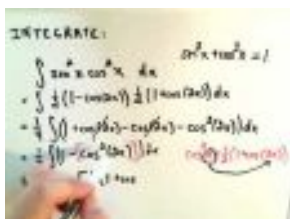 INTEGRATE:
sin²x + cos²x = 1
∫ sin²x cos²x dx
= ∫ ½(1-cos(2x)) ½(1+cos(2x)) dx
= ¼ ∫(1 + cos(2x) - cos(2x) - cos²(2x)) dx
= ¼ ∫(1 - cos²(2x)) dx
½(1+cos(2x))